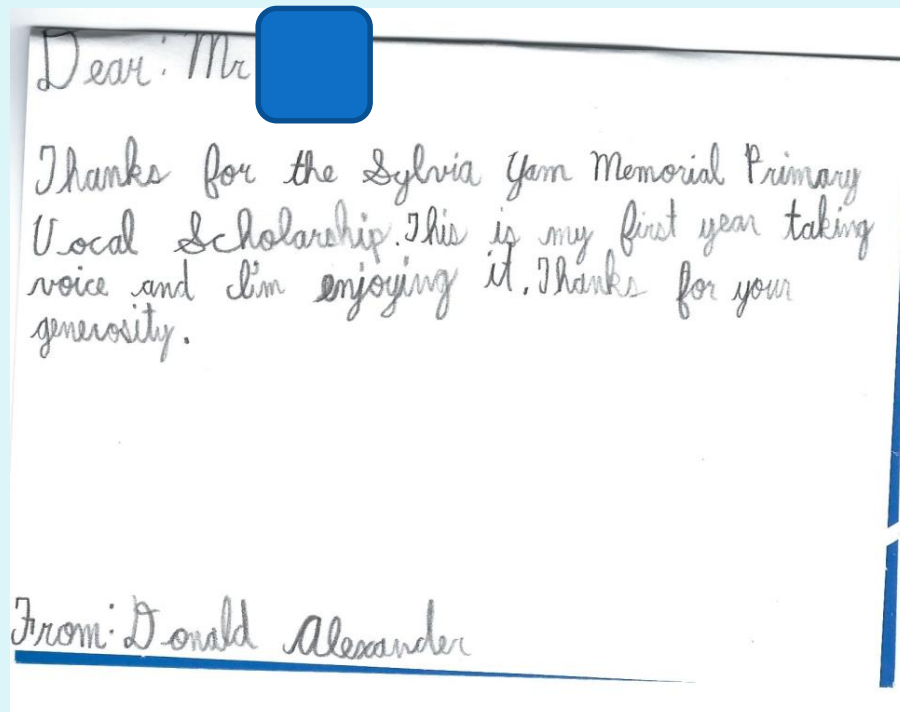 Dear: Mr
Thanks for the Sylvia Yam Memorial Primary
Vocal Scholarship. This is my first year taking
voice and I'm enjoying it. Thanks for your
generosity.
From: Donald Alexander